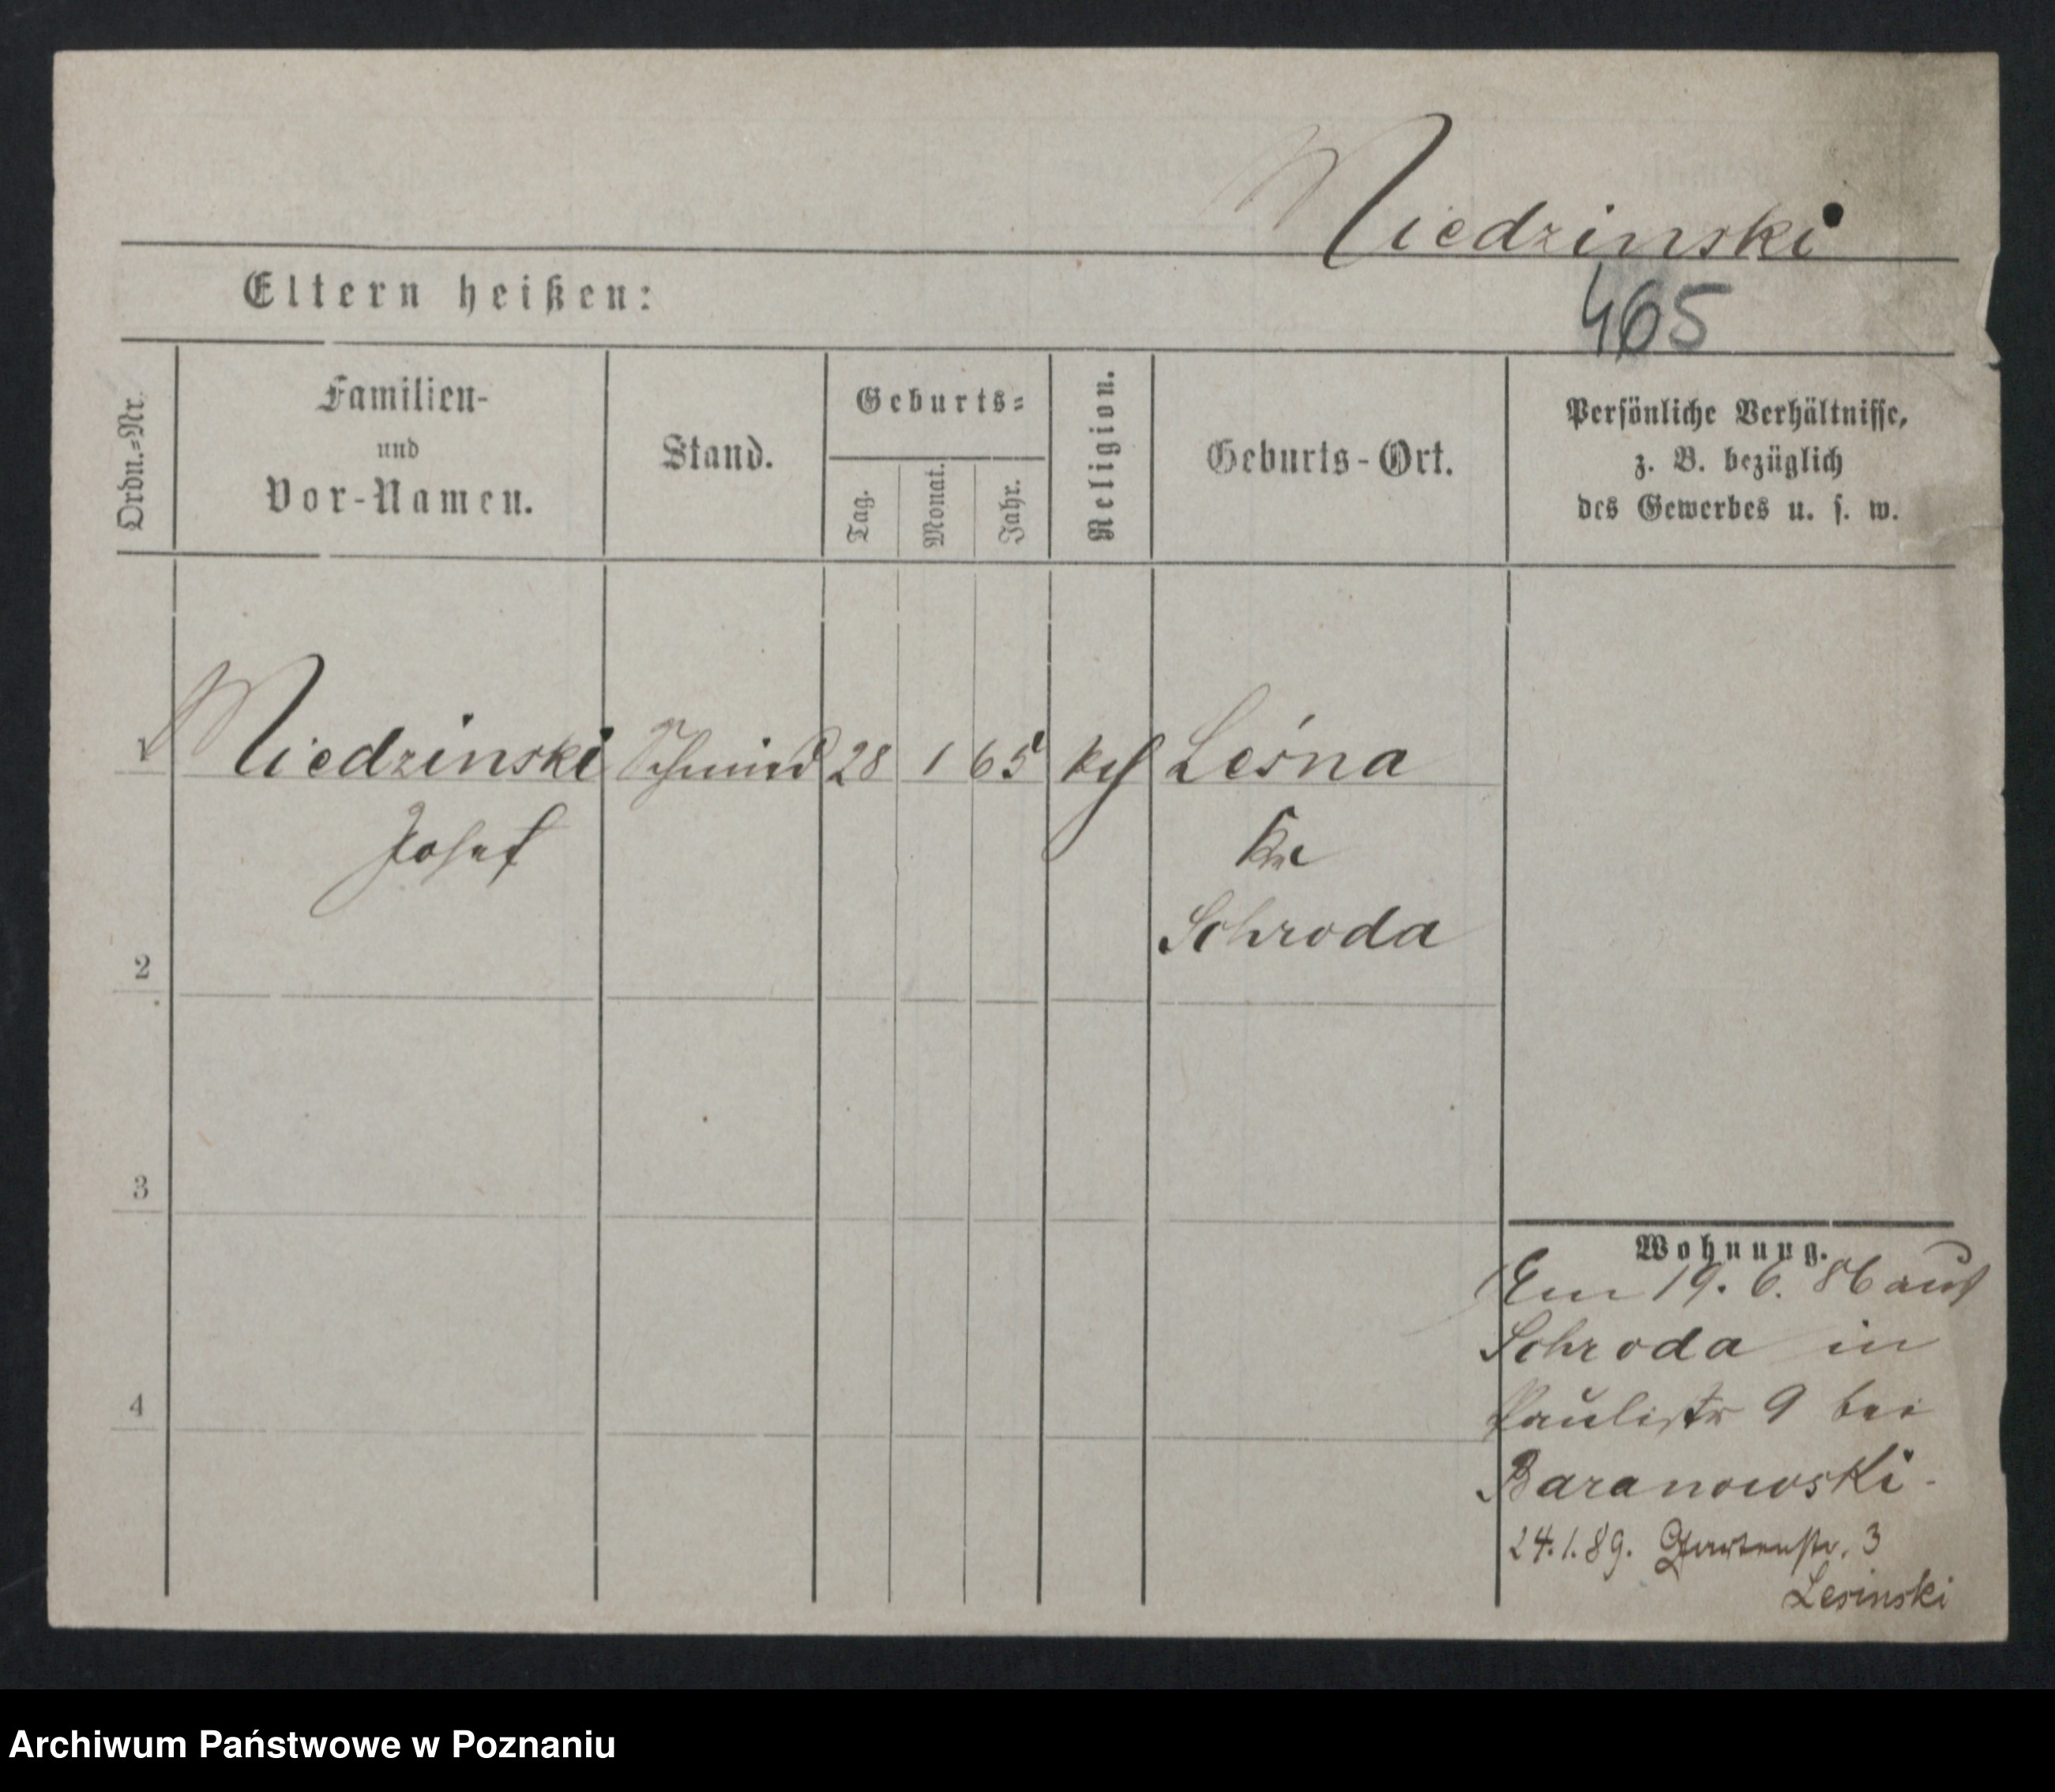 Niedzinski
465
Eltern heißen:
Ordn.=Nr.
Familien-
und
Vor-Namen.
Stand.
Geburts=
Tag.
Monat.
Jahr.
Religion.
Geburts-Ort.
Persönliche Verhältnisse,
z. B. bezüglich
des Gewerbes u. s. w.
1 Niedzinski Schmied 28 1 65 kth Leśna
Josef Krs
Schroda
2
3
4
Wohnung.
19. 6. 86 aus
Schroda in
Paulistr 9 bei
Baranowski -
24.1.89. Gartenstr. 3
Lesinski
Archiwum Państwowe w Poznaniu